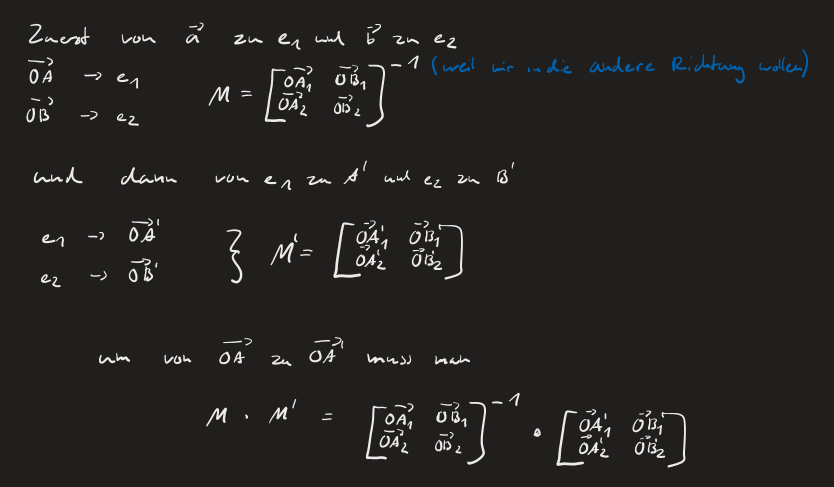 Zuerst von a⃗ zu e₁ und b⃗ zu e₂
OA⃗ → e₁
OB⃗ → e₂
M = [OA⃗₁ OB⃗₁; OA⃗₂ OB⃗₂]⁻¹ (weil wir in die andere Richtung wollen)
und dann von e₁ zu A' und e₂ zu B'
e₁ → OA⃗'
e₂ → OB⃗'
} M' = [OA⃗'₁ OB⃗'₁; OA⃗'₂ OB⃗'₂]
um von OA⃗ zu OA⃗' muss man
M · M' = [OA⃗₁ OB⃗₁; OA⃗₂ OB⃗₂]⁻¹ · [OA⃗'₁ OB⃗'₁; OA⃗'₂ OB⃗'₂]